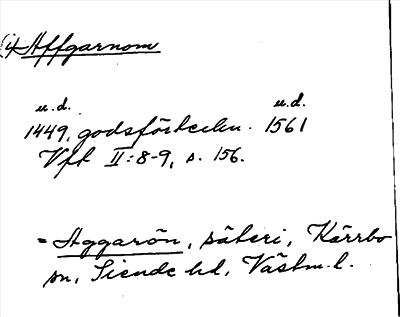 (i) Affgarnom
u.d. u.d.
1449, godsförteckn. 1561
Vft II:8-9, s. 156.
= Aggarön, säteri, Kärrbo
sn, Siende hd, Västm. l.